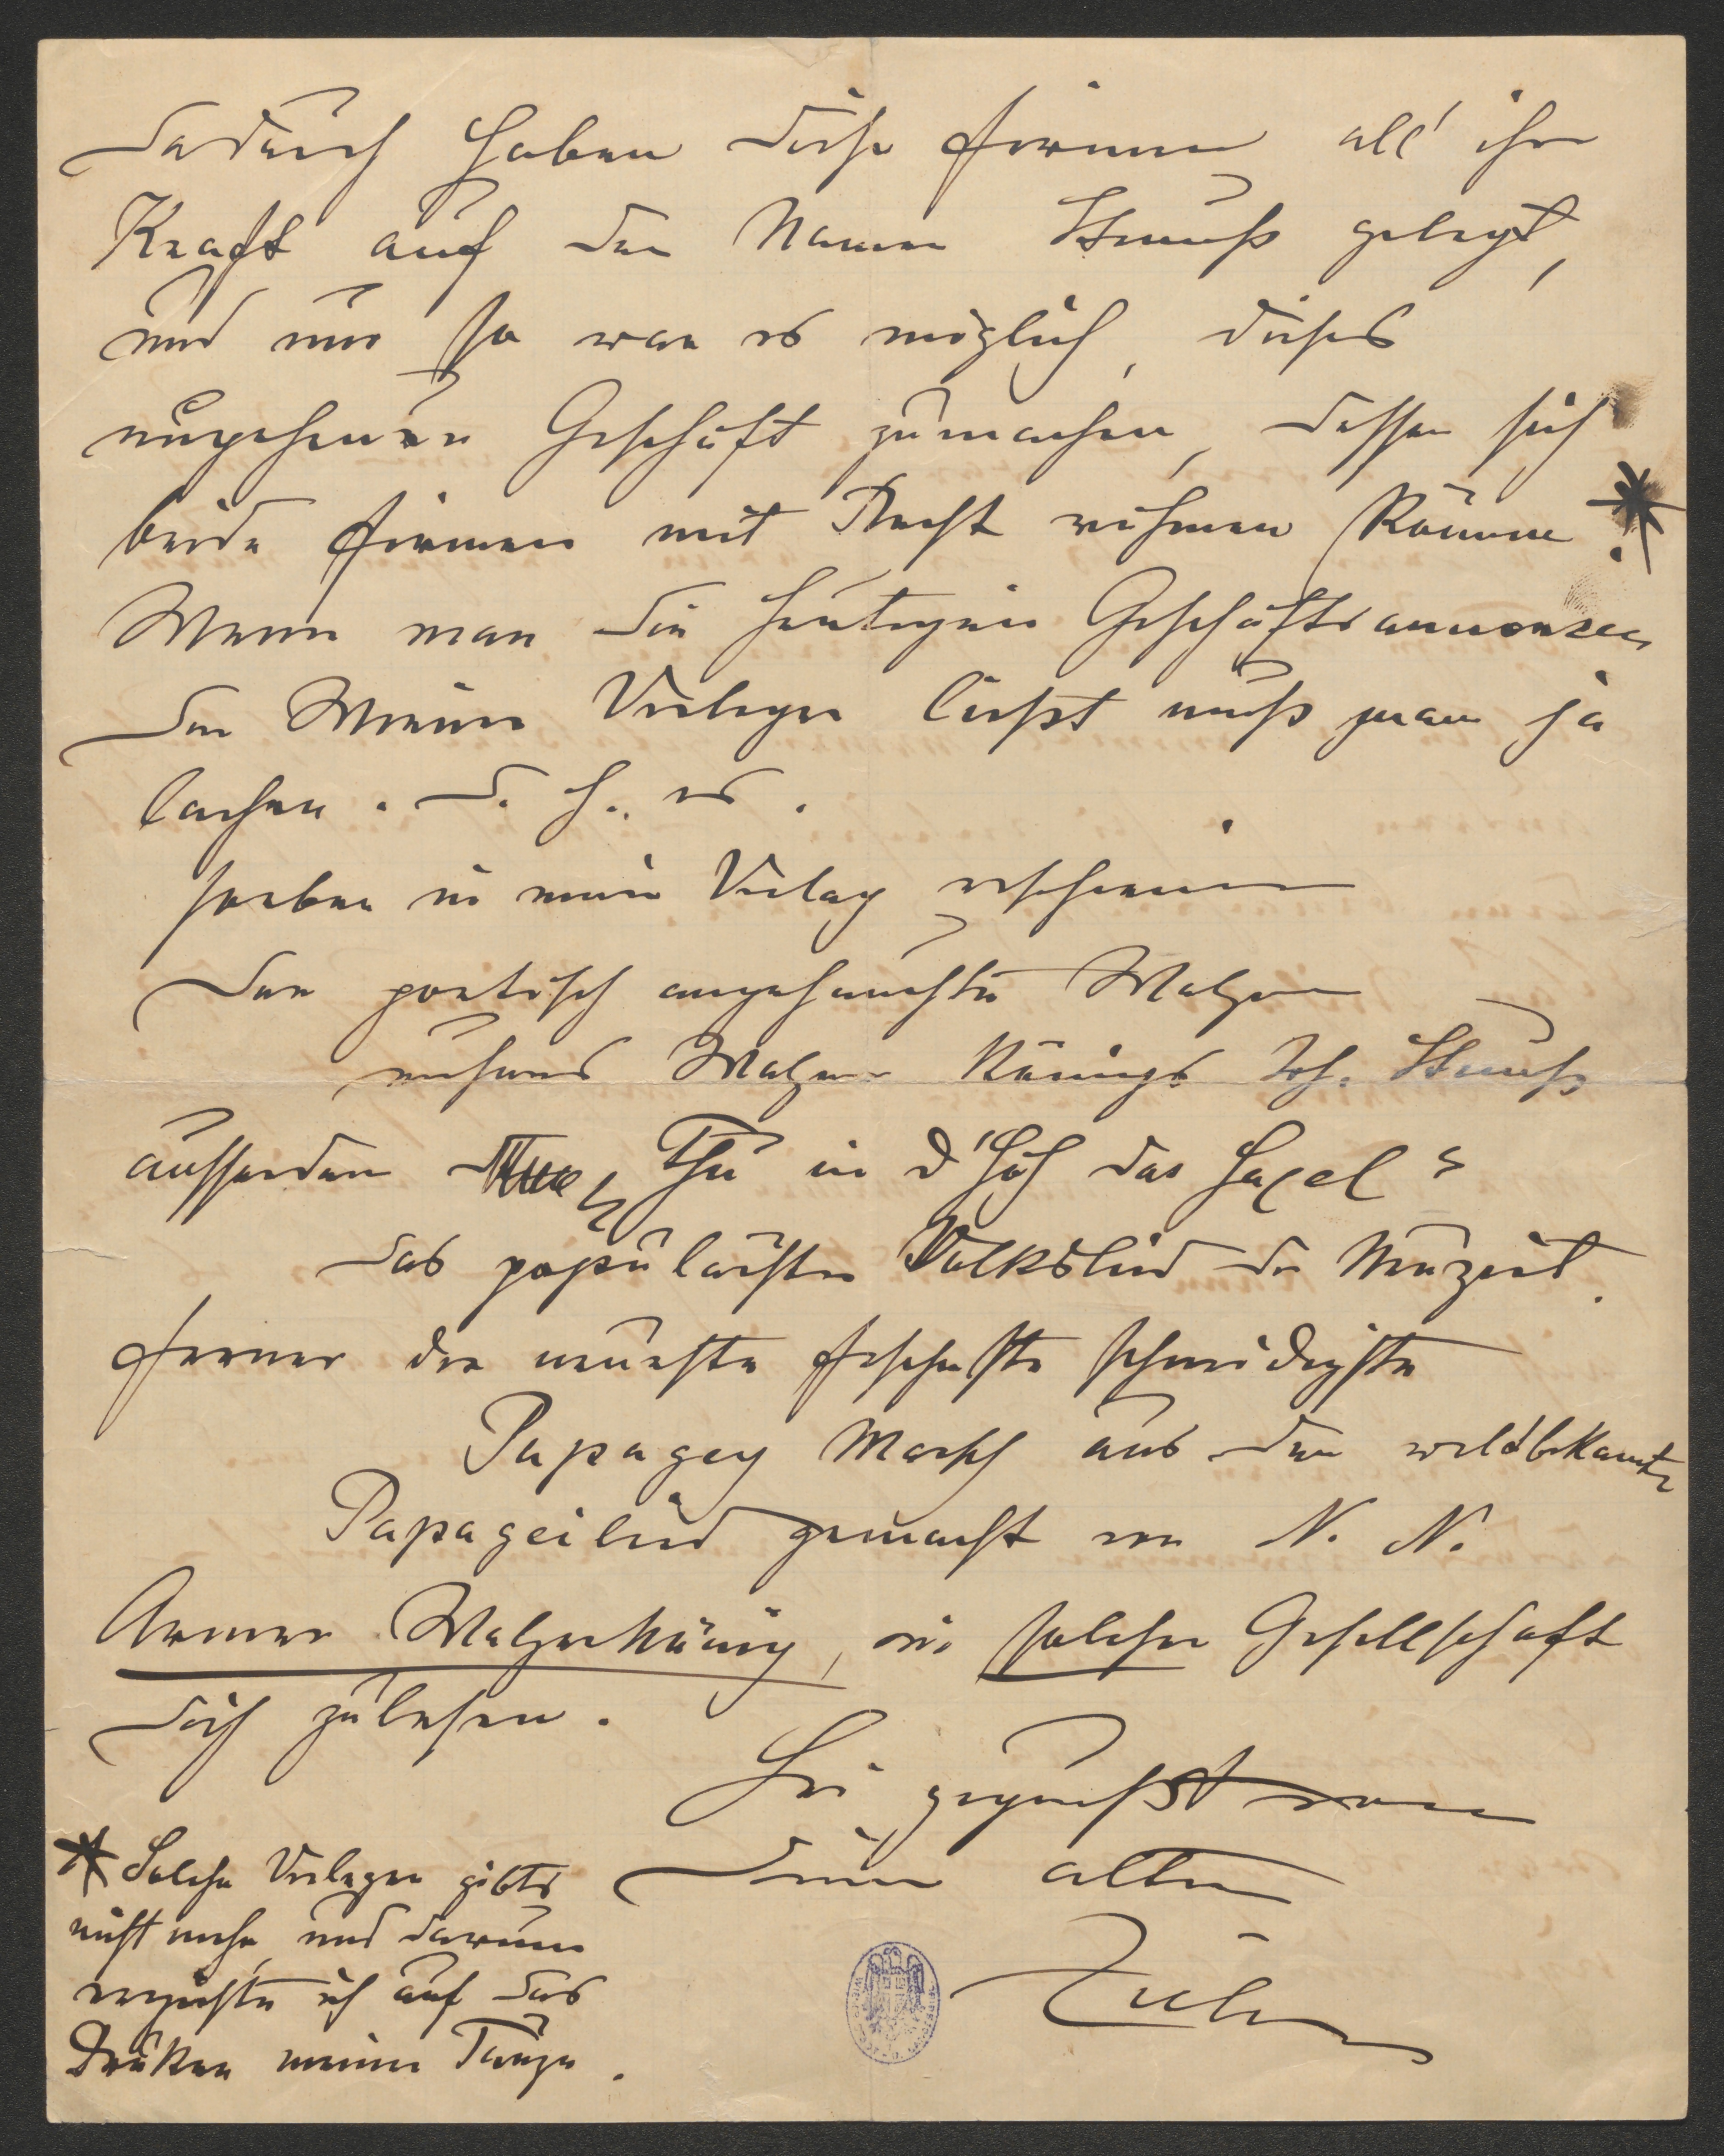 dadurch haben diese Firmen all' ihre
Kraft auf den Namen Strauß gelegt,
und nur so war es möglich, dieses
ungeheuere Geschäft zumachen, dessen sich
beide Firmen mit Recht rühmen können. *
Wenn man die heutigen Geschäftsannonzen
der Wiener Verleger ließt muß man ja
lachen. d. h. es.
soeben in mein Verlag erschienen
der poetisch angehauchte Walzer
unseres Walzer Königs Joh. Strauß
ausserdem „Thu in d'Höh das Haxel"
das populärste Volkslied der Neuzeit.
ferner der neueste fescheste schneidigste
Papagey Marsch aus dem weltbekannte
Papageilied gemacht von N. N.
Armer Walzerkönig, in solcher Gesellschaft
dich zulesen.
Sei gegrüßt von
Deinem alten
* Solche Verleger gibts
nicht mehr, und darum
verzichte ich auf das
Druken meiner Tänze.